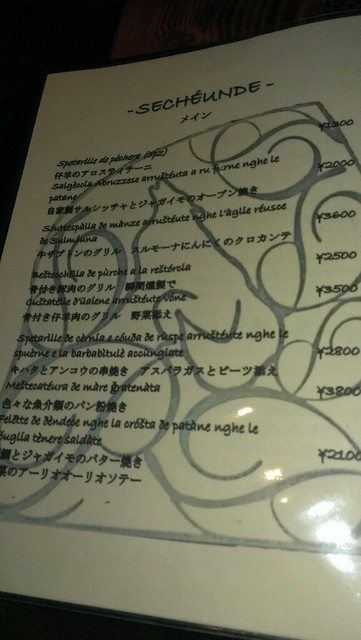 -SECHÉUNDE-
メイン
Spetarille de pêchera (5pz)
¥1300
仔羊のアロスティチーニ
Salgêcola abruzzese arruštéuta a ru furne nghe le
patane
¥2000
自家製サルシッチャとジャガイモのオーブン焼き
Sputtespàlla de mànze arruštéute nghe l'àglie réusce
de Sulmóuna
¥3600
牛ザブトンのグリル スルモーナにんにくのクロカンテ
Beštecchêlla de pùrche a la reštórcia
¥2500
骨付き豚肉のグリル 瞬間燻製で
Cuštatêlle d'Aalene arruštéute vóne
¥3500
骨付き仔羊肉のグリル 野菜添え
Spetarille de cèrnia e cóuda de ruspe arruštéute nghe le
spuêrne e la barbabitulè accunglate
¥2800
キハタとアンコウの串焼き アスパラガスとビーツ添え
Meštecatéura de màre gratenàta
¥3800
色々な魚介類のパン粉焼き
Felêtte de dêndece nghe la crósta de patàne nghe le
fóuglia tènere saldàte
¥2100
鯛とジャガイモのバター焼き
菜のアーリオオーリオソテー